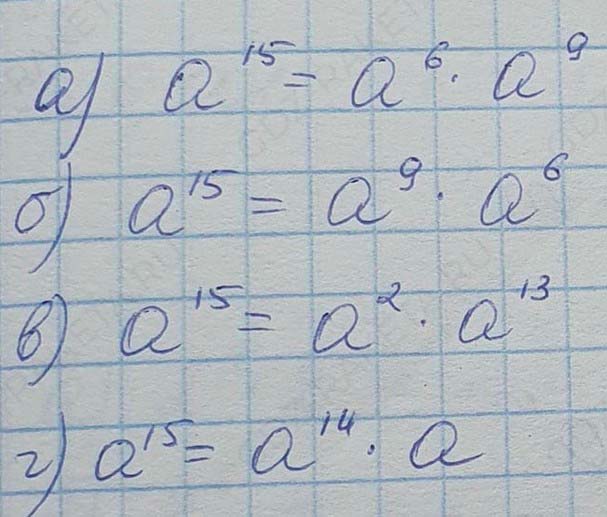 а) a¹⁵ = a⁶ · a⁹
б) a¹⁵ = a⁹ · a⁶
в) a¹⁵ = a² · a¹³
г) a¹⁵ = a¹⁴ · a